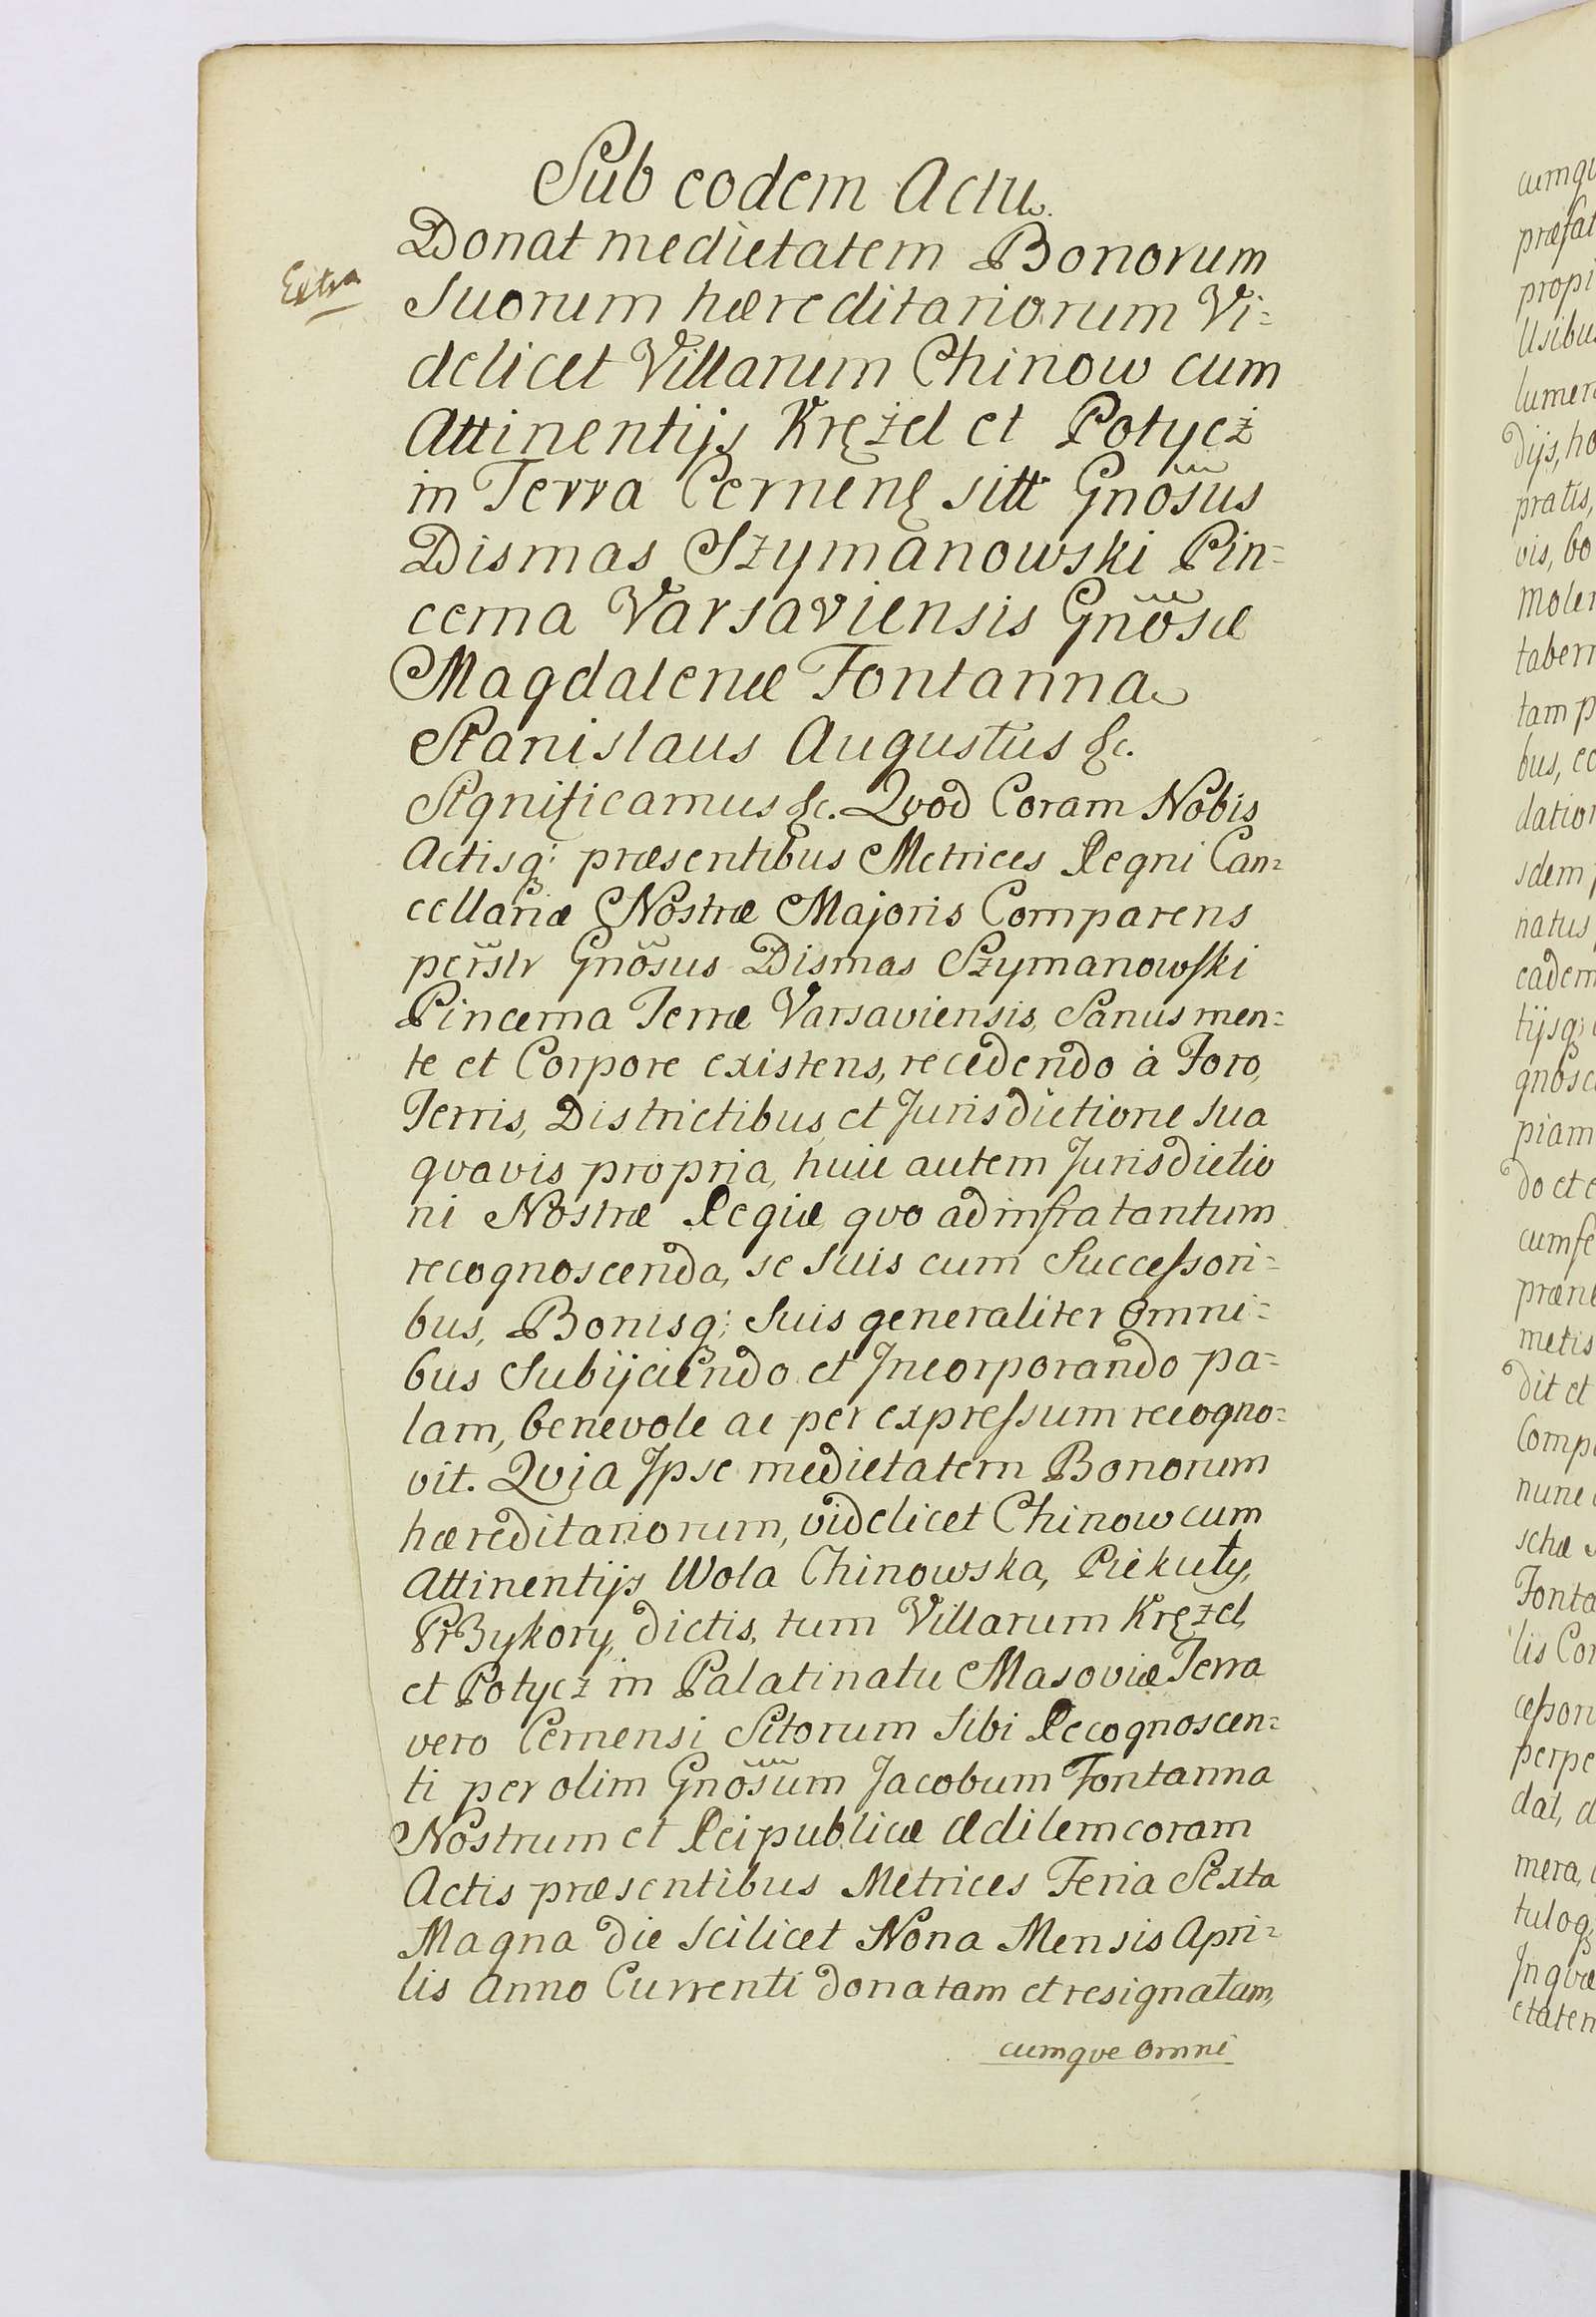 Sub eodem Actu.
Donat medietatem Bonorum
Extra
Suorum hæreditariorum Vi=
delicet Villarum Chinow cum
Attinentijs Krężel et Potycż
in Terra Cernenę sitt Gnosus
Dismas Szymanowski Pin=
cerna Varsaviensis Gnosæ
Magdalenæ Fontanna
Stanislaus Augustus &c.
Significamus &c. Qvod Coram Nobis
Actisq; præsentibus Metrices Regni Can=
cellariæ Nostræ Majoris Comparens
perslr Gnosus Dismas Szymanowski
Pincerna Terræ Varsaviensis, Sanus men=
te et Corpore existens, recedendo à Foro,
Terris, Districtibus et Jurisdictione sua
qvavis propria, huic autem Jurisdictio
ni Nostræ Regiæ qvo ad infra tantum
recognoscenda, se suis cum Successori=
bus, Bonisq; Suis generaliter omni=
bus Subijciendo et Jncorporando pa=
lam, benevole ac per expressum recogno=
vit. Qvia Jpse medietatem Bonorum
hæreditariorum, videlicet Chinow cum
Attinentijs Wola Chinowska, Piekuty,
Przykory, dictis, tum Villarum Krężel,
et Potycż in Palatinatu Masoviæ Terra
vero Cernensi Sitorum sibi Recognoscen=
ti per olim Gnosum Jacobum Fontanna
Nostrum et Reipublicæ Ædilem coram
Actis præsentibus Metrices Feria Sexta
Magna die scilicet Nona Mensis Apri=
lis Anno Currenti donatam et resignatam,
cumqve omni